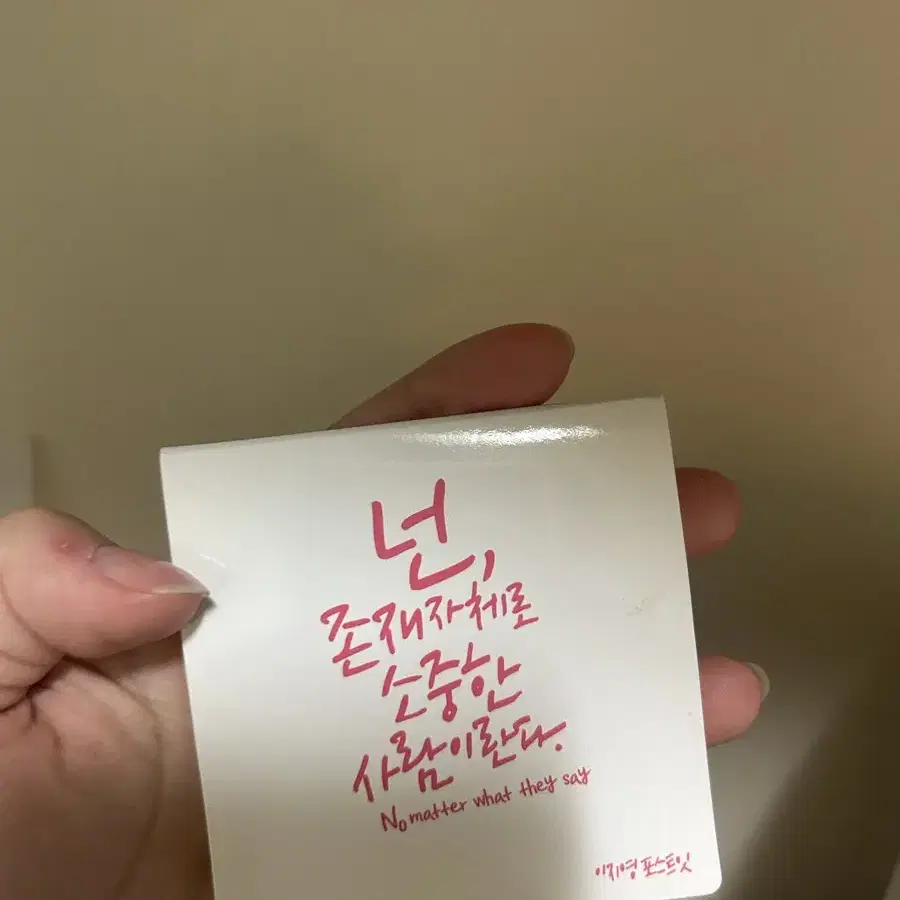 넌,
존재자체로
소중한
사람이란다.
No matter what they say
이지영 포스트잇